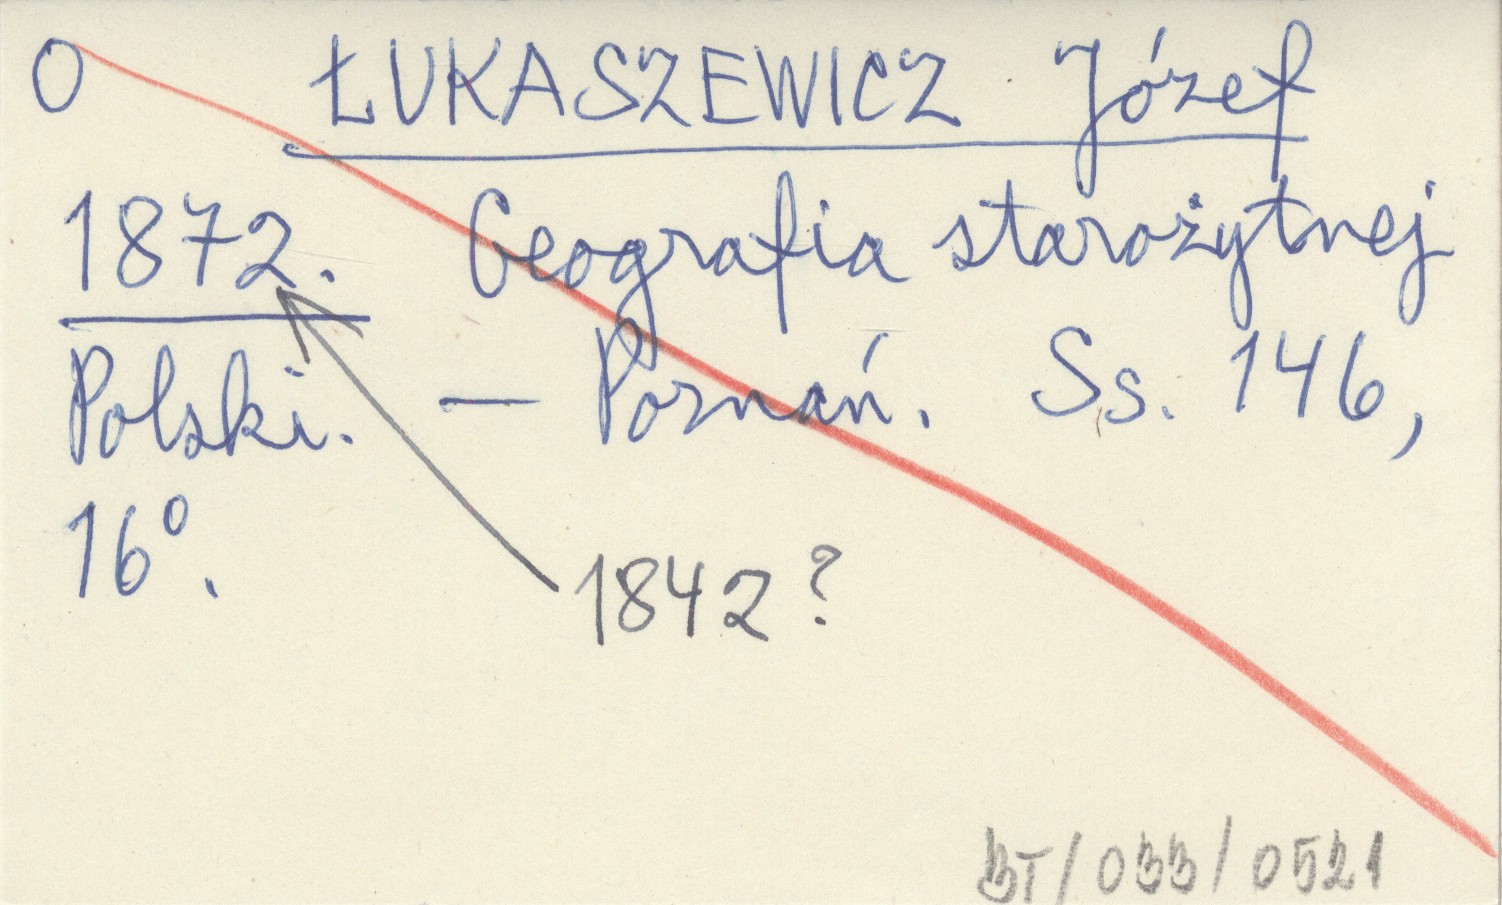 O ŁUKASZEWICZ Józef
1872. Geografia starożytnej
Polski. — Poznań. Ss. 146,
16°.
1842?
BT/033/0521